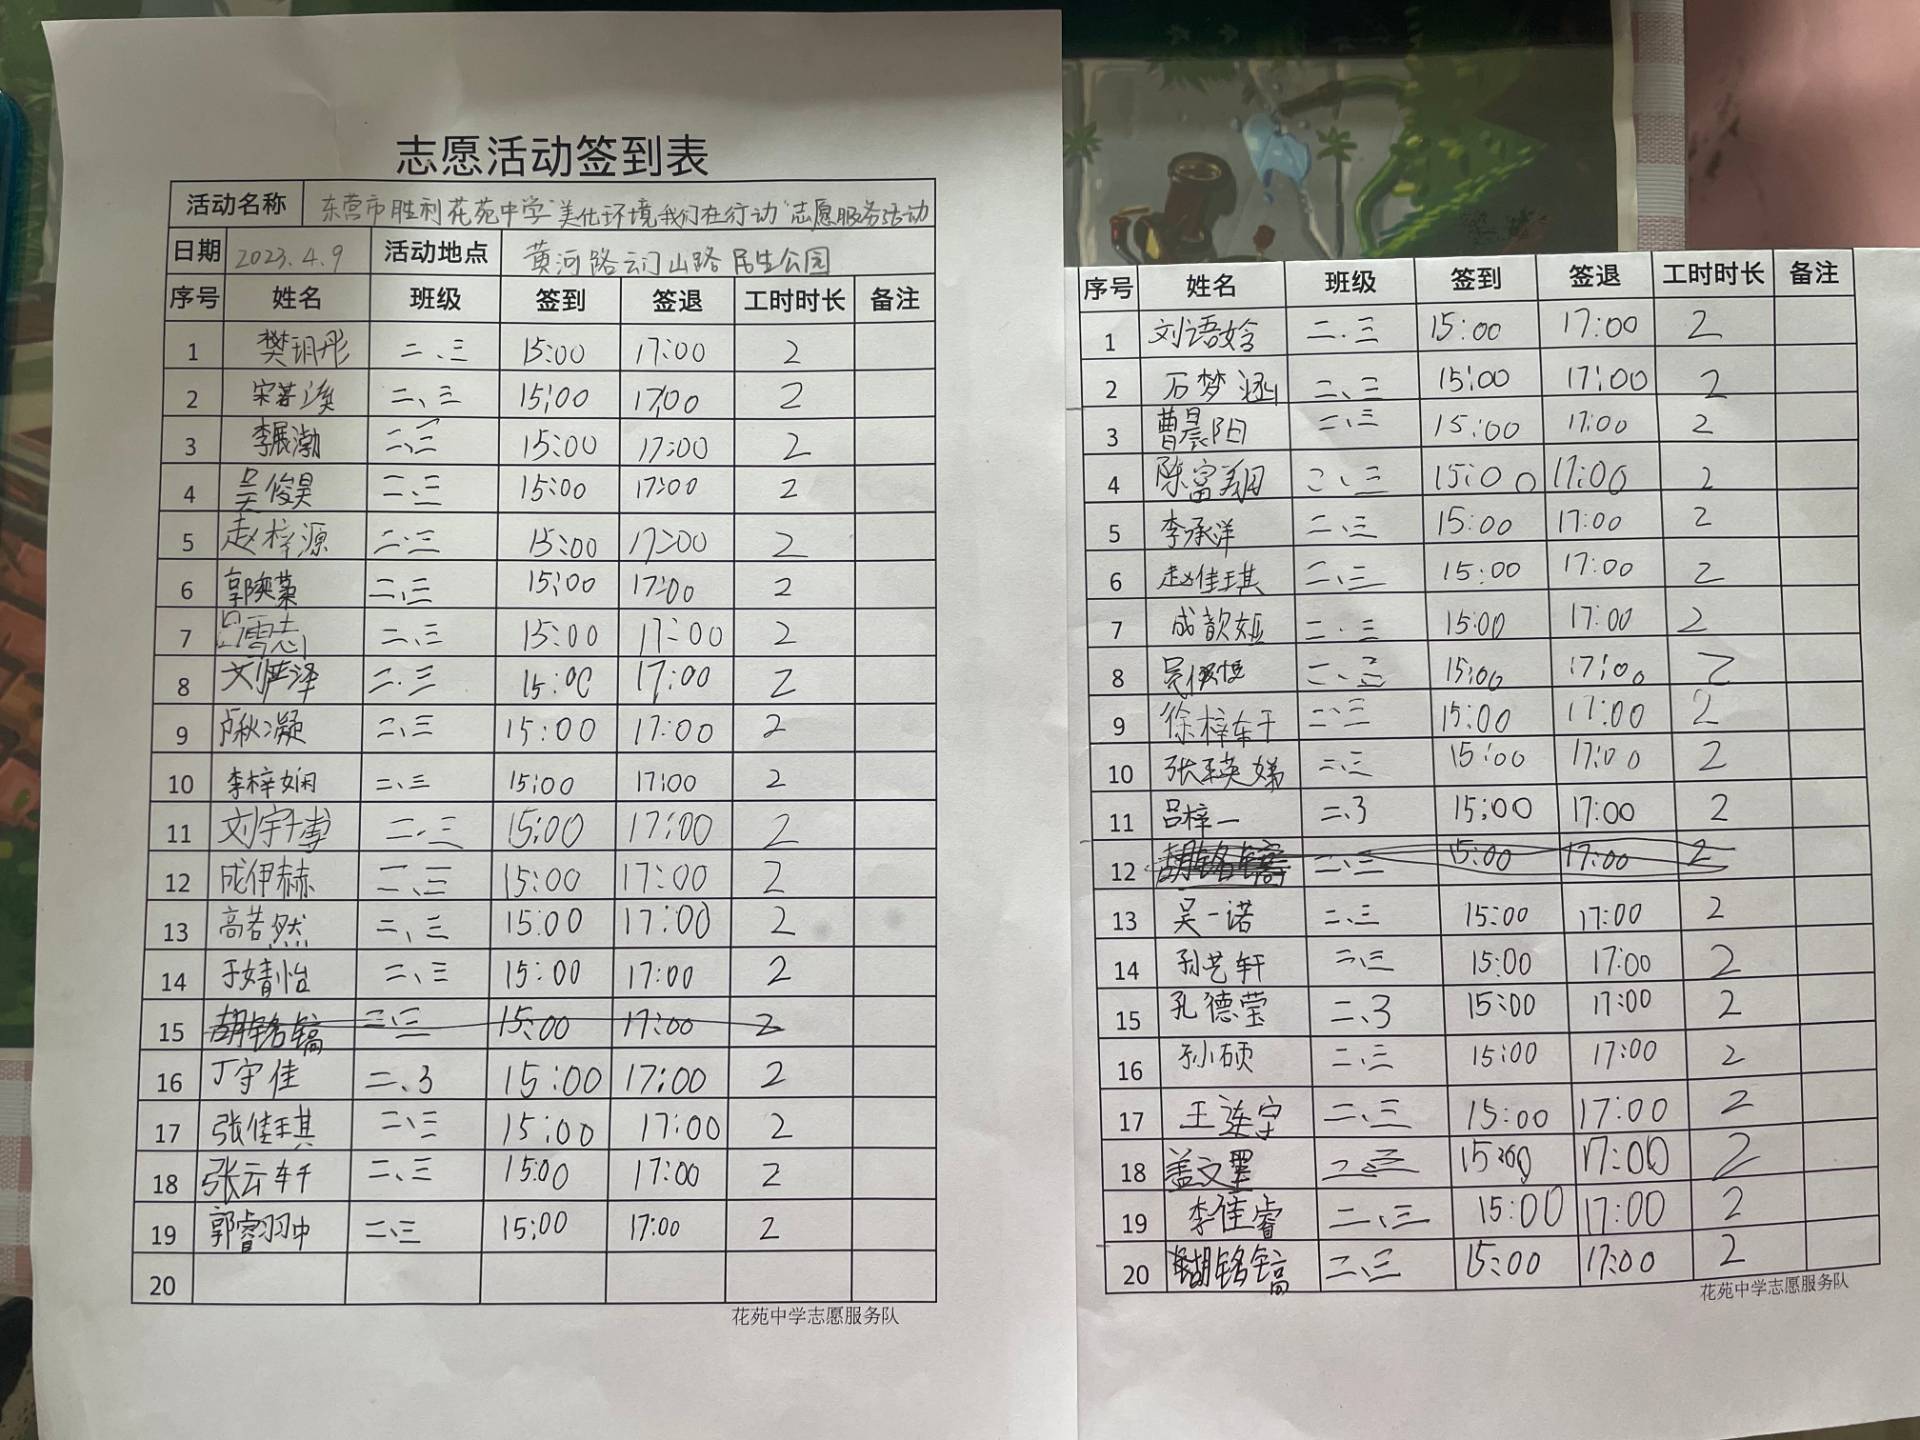 志愿活动签到表
活动名称 东营市胜利花苑中学"美化环境我们在行动"志愿服务活动
日期 2023.4.9 活动地点 黄河路云门山路民生公园
序号 姓名 班级 签到 签退 工时时长 备注
1 樊玥彤 二、三 15:00 17:00 2
2 二、三 15:00 17:00 2
3 李展渤 二、三 15:00 17:00 2
4 吴俊昊 二、三 15:00 17:00 2
5 赵梓源 二、三 15:00 17:00 2
6 二、三 15:00 17:00 2
7 吕雪志 二、三 15:00 17:00 2
8 二、三 15:00 17:00 2
9 卢秋凝 二、三 15:00 17:00 2
10 李梓娴 二、三 15:00 17:00 2
11 刘宇博 二、三 15:00 17:00 2
12 成伊赫 二、三 15:00 17:00 2
13 高若然 二、三 15:00 17:00 2
14 于婧怡 二、三 15:00 17:00 2
15 胡铭镐 二、三 15:00 17:00 2
16 丁守佳 二、3 15:00 17:00 2
17 张佳琪 二、三 15:00 17:00 2
18 张云轩 二、三 15:00 17:00 2
19 郭睿翀 二、三 15:00 17:00 2
20
花苑中学志愿服务队
序号 姓名 班级 签到 签退 工时时长 备注
1 刘语姈 二、三 15:00 17:00 2
2 石梦涵 二、三 15:00 17:00 2
3 曹晨阳 二、三 15:00 17:00 2
4 陈富翔 二、三 15:00 17:00 2
5 李承洋 二、三 15:00 17:00 2
6 赵佳琪 二、三 15:00 17:00 2
7 成歆娅 二、三 15:00 17:00 2
8 二、三 15:00 17:00 2
9 徐梓轩 二、三 15:00 17:00 2
10 张瑛娣 二、三 15:00 17:00 2
11 吕梓一 二、3 15:00 17:00 2
12 胡铭镐 二、三 15:00 17:00 2
13 吴一诺 二、三 15:00 17:00 2
14 孙艺轩 二、三 15:00 17:00 2
15 孔德莹 二、3 15:00 17:00 2
16 孙硕 二、三 15:00 17:00 2
17 王连宇 二、三 15:00 17:00 2
18 盖文墨 二、三 15:00 17:00 2
19 李佳睿 二、三 15:00 17:00 2
20 胡铭镐 二、三 15:00 17:00 2
花苑中学志愿服务队